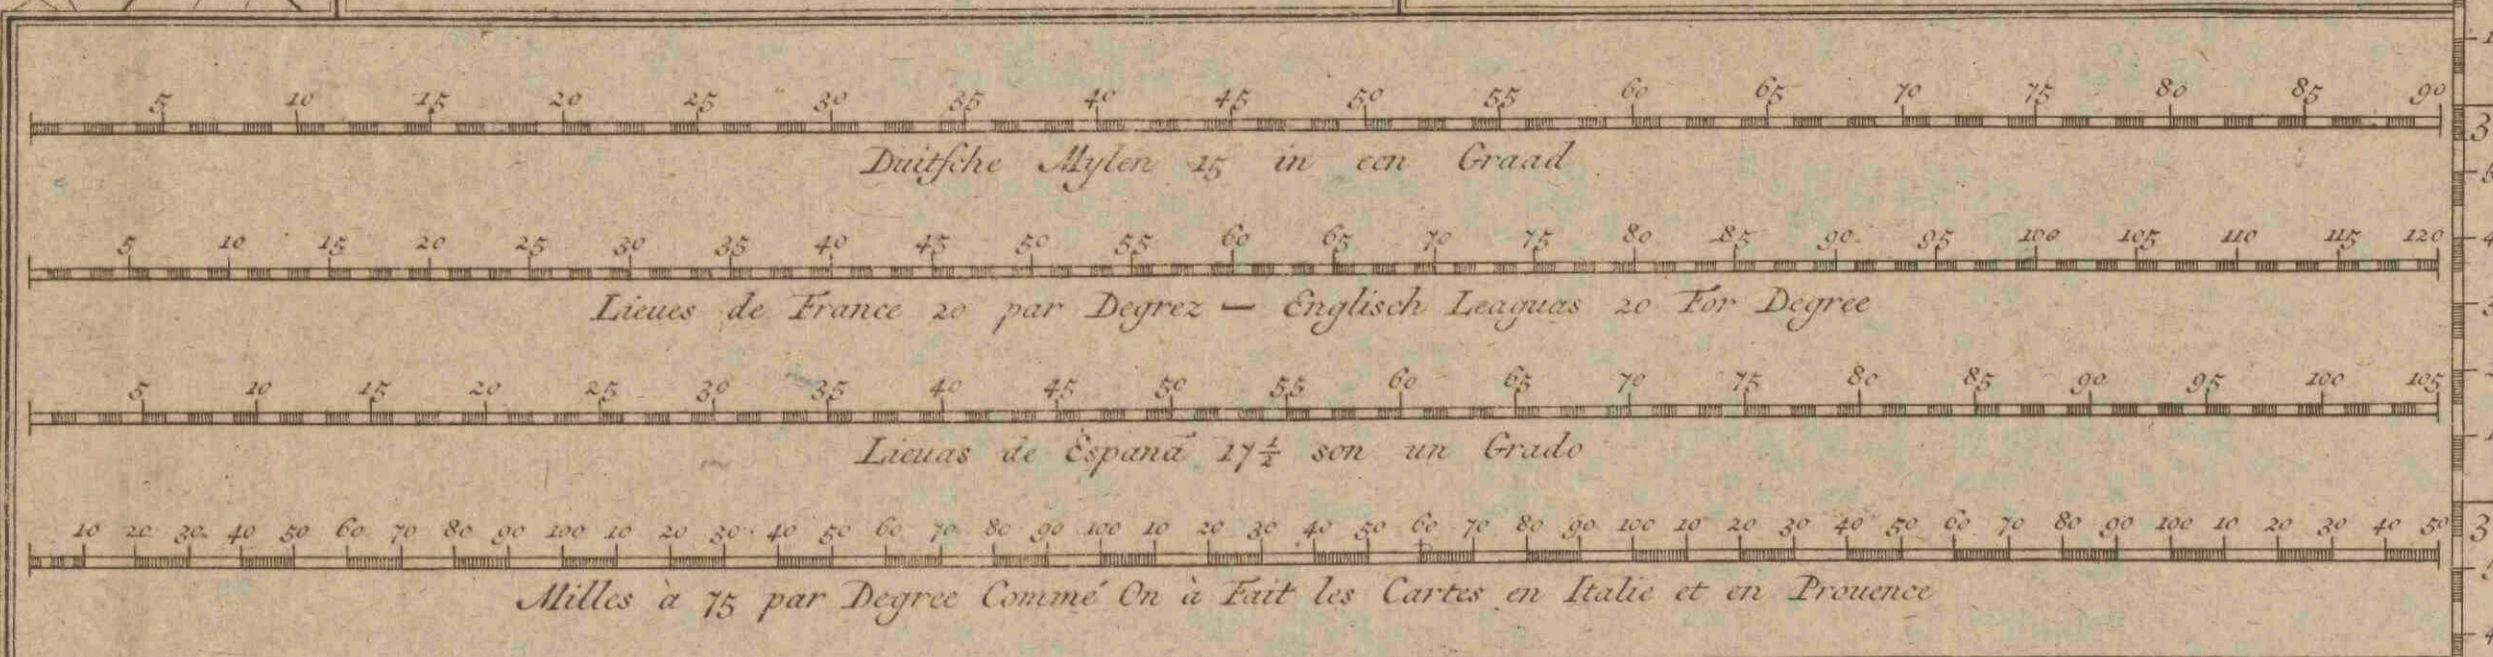 5 10 15 20 25 30 35 40 45 50 55 60 65 70 75 80 85 90
Duitsche Mylen 15 in een Graad
5 10 15 20 25 30 35 40 45 50 55 60 65 70 75 80 85 90 95 100 105 110 115 120
Lieues de France 20 par Degrez — Englisch Leaguas 20 For Degree
5 10 15 20 25 30 35 40 45 50 55 60 65 70 75 80 85 90 95 100 105
Lieuas de Espana 17½ son un Grado
10 20 30 40 50 60 70 80 90 100 10 20 30 40 50 60 70 80 90 100 10 20 30 40 50 60 70 80 90 100 10 20 30 40 50 60 70 80 90 100 10 20 30 40 50
Milles à 75 par Degree Commé On à Fait les Cartes en Italie et en Prouence